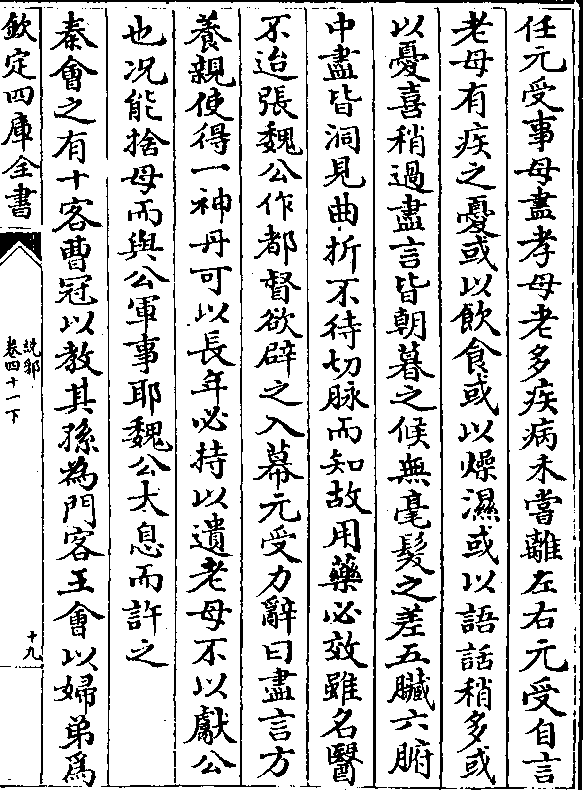 任元受事母盡孝母老多疾病未嘗離左右元受自言
老母有疾之憂或以飲食或以燥濕或以語話稍多或
以憂喜稍過盡言皆朝暮之候無毫髮之差五臟六腑
中盡皆洞見曲折不待切脉而知故用藥必效雖名醫
不迨張魏公作都督欲辟之入幕元受力辭曰盡言方
養親使得一神丹可以長年必持以遺老母不以獻公
也况能捨母而與公軍事耶魏公太息而許之
秦會之有十客曹冠以教其孫為門客王會以婦弟爲
欽定四庫全書
說郛
卷四十一下
十九